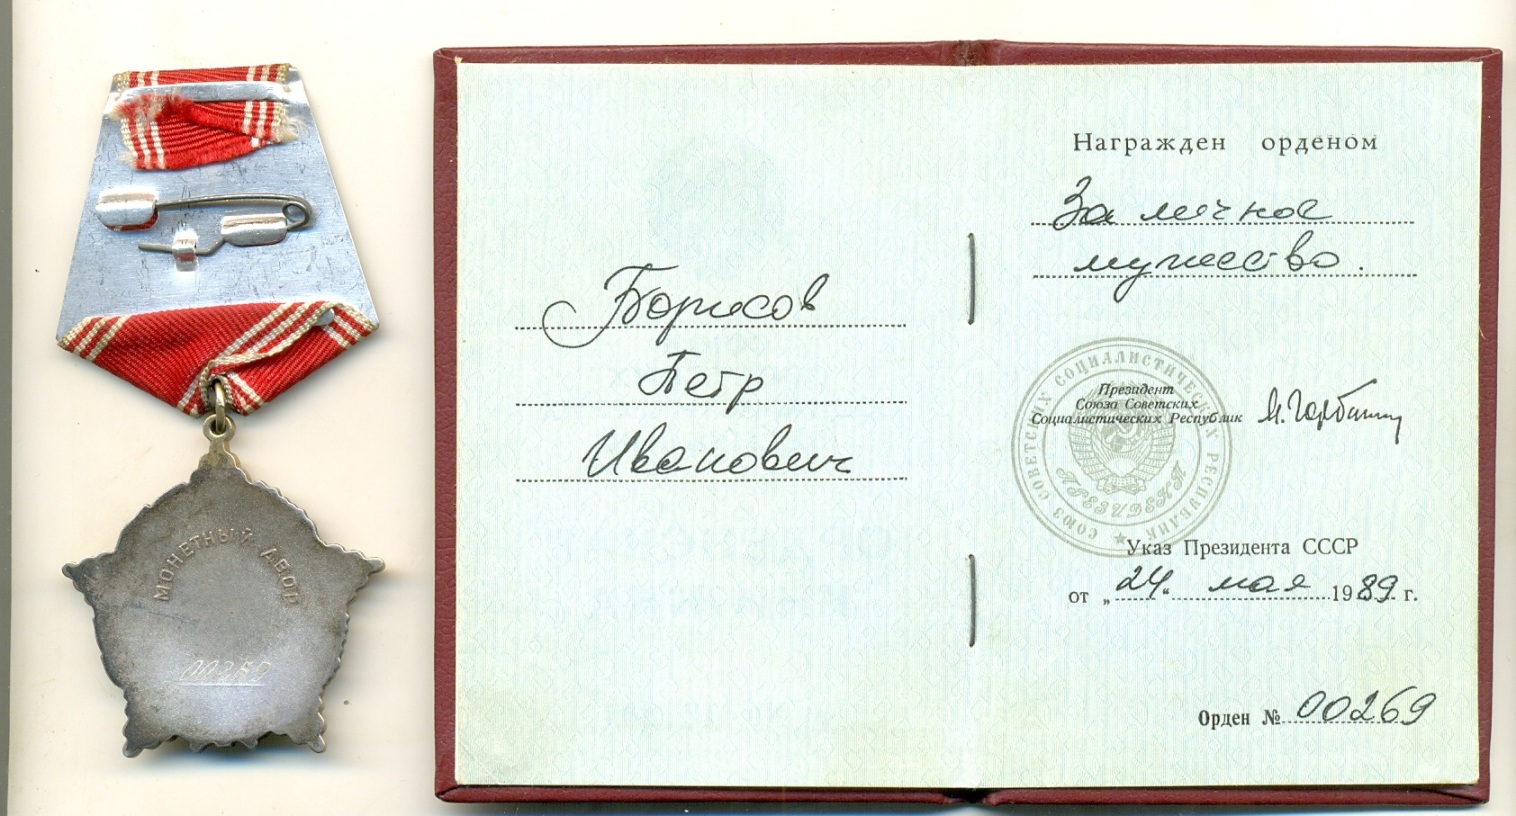 МОНЕТНЫЙ ДВОР
Борисов
Петр
Иванович
Награжден орденом
За личное
мужество.
СОЮЗ СОВЕТСКИХ СОЦИАЛИСТИЧЕСКИХ РЕСПУБЛИК
ПРЕЗИДЕНТ
Президент
Союза Советских
Социалистических Республик
М. Горбачев
Указ Президента СССР
от „24“ мая 1989 г.
Орден № 00269